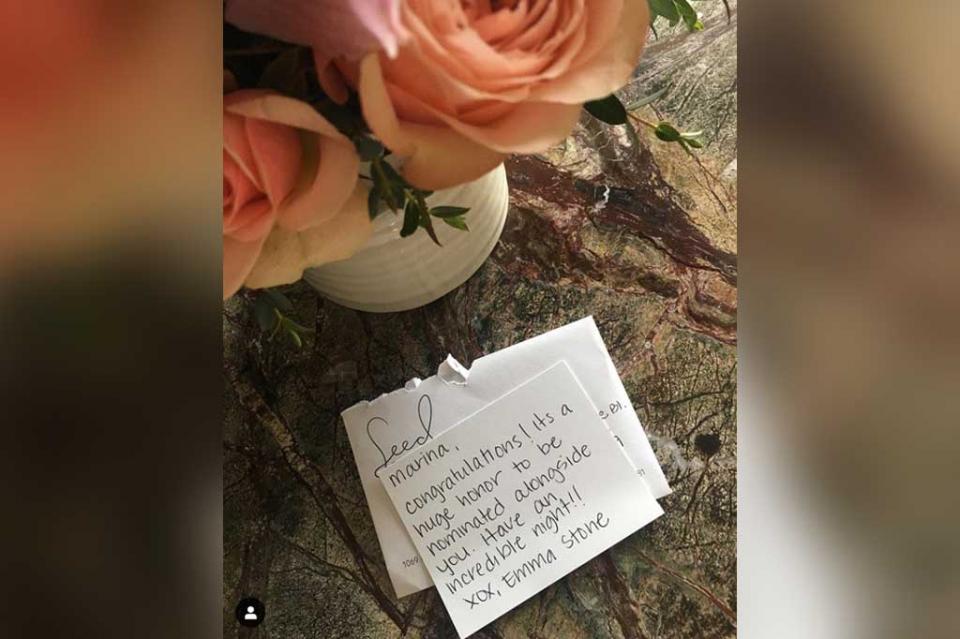 Seed
marina,
congratulations! its a
huge honor to be
nominated alongside
you. Have an
incredible night!!
xox, Emma Stone
1069